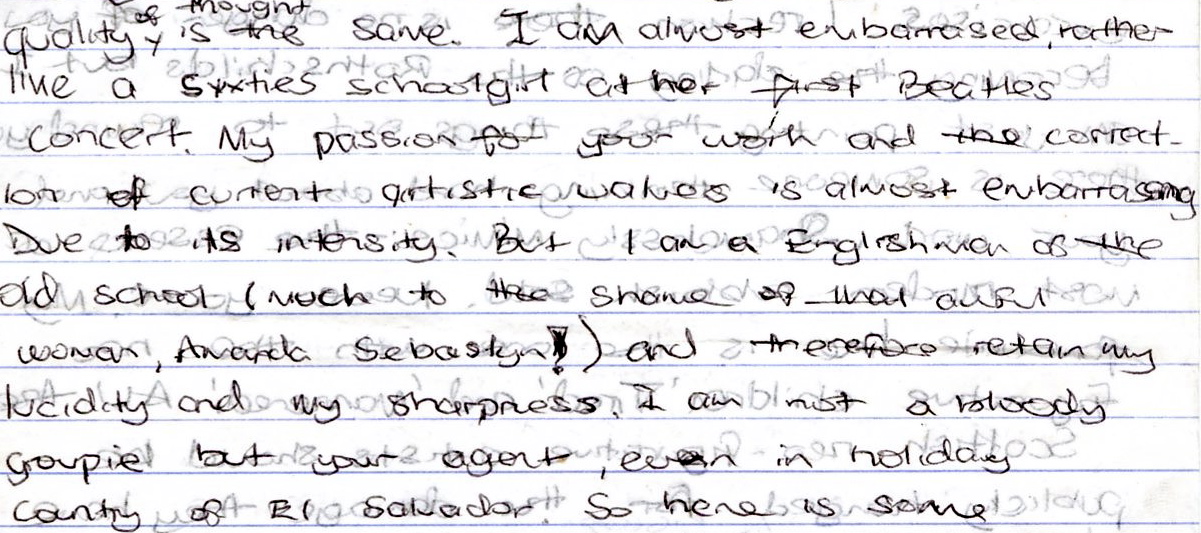 of thought
quality, is the same. I am almost embarrased, rather
like a sixties schoolgirl at her first Beatles
concert. My passion for your work and the correct-
ion of current artistic values is almost embarrasing
Due to its intensity. But I am a Englishman of the
old school (much to the shame of that awful
woman, Amanda Sebastyn!) and therefore retain my
lucidity and my sharpness. I am not a bloody
groupie but your agent, even in holiday
country of El Salvador. So here is some